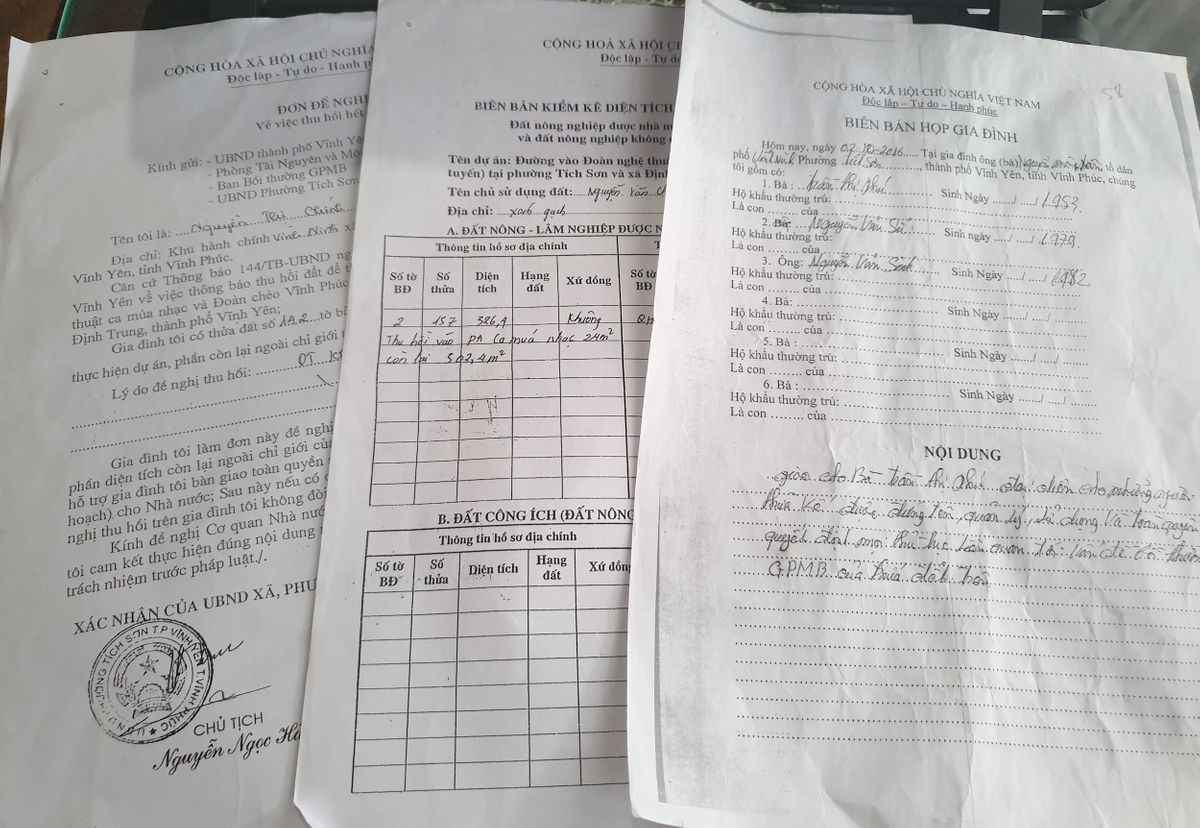 CỘNG HÒA XÃ HỘI CHỦ NGHĨA
Độc lập - Tự do - Hạnh
ĐƠN ĐỀ NGHỊ
Về việc thu hồi hết
Kính gửi: - UBND thành phố Vĩnh Yên
- Phòng Tài Nguyên và Mô
- Ban Bồi thường GPMB
- UBND Phường Tích Sơn
Tên tôi là: Nguyễn Thị Chính
Địa chỉ: Khu hành chính Vinh Ninh
Vĩnh Yên, tỉnh Vĩnh Phúc.
Căn cứ Thông báo 144/TB-UBND
Vĩnh Yên về việc thông báo thu hồi đất để
thuật ca múa nhạc và Đoàn chèo Vĩnh Phúc
Định Trung, thành phố Vĩnh Yên;
Gia đình tôi có thửa đất số 142 tờ
thực hiện dự án, phần còn lại ngoài chỉ giới
Lý do đề nghị thu hồi:
Gia đình tôi làm đơn này đề nghị
phần diện tích còn lại ngoài chỉ giới
hỗ trợ gia đình tôi bàn giao toàn quyền
hoạch) cho Nhà nước; Sau này nếu có
nghị thu hồi trên gia đình tôi không đòi
Kính đề nghị Cơ quan Nhà nước
tôi cam kết thực hiện đúng nội dung
trách nhiệm trước pháp luật./.
XÁC NHẬN CỦA UBND XÃ, PHƯ
CHỦ TỊCH
Nguyễn Ngọc
CỘNG HOÀ XÃ HỘI
Độc lập
BIÊN BẢN KIỂM KÊ DIỆN TÍCH
Đất nông nghiệp được nhà
và đất nông nghiệp không
Tên dự án: Đường vào Đoàn nghệ thuậ
tuyến) tại phường Tích Sơn và xã Định
Tên chủ sử dụng đất: Nguyễn Văn
Địa chỉ: xanh gạch
A. ĐẤT NÔNG - LÂM NGHIỆP ĐƯỢC
Thông tin hồ sơ địa chính
Số tờ BĐ Số thửa Diện tích Hạng đất Xứ đồng Số tờ BĐ
2 157 326,4 Khuông
Thu hồi vào DA Ca múa nhạc 24m²
còn lại 302,4m²
B. ĐẤT CÔNG ÍCH (ĐẤT NÔNG
Thông tin hồ sơ địa chính
Số tờ BĐ Số thửa Diện tích Hạng đất Xứ đồng
58
CỘNG HÒA XÃ HỘI CHỦ NGHĨA VIỆT NAM
Độc lập – Tự do – Hạnh phúc
BIÊN BẢN HỌP GIA ĐÌNH
Hôm nay, ngày 02-10-2016 Tại gia đình ông (bà) Nguyễn tổ dân
phố Vinh Ninh Phường Tích Sơn, thành phố Vĩnh Yên, tỉnh Vĩnh Phúc, chúng
tôi gồm có:
1. Bà : Trần Thị Sinh Ngày / / 1953
Hộ khẩu thường trú:
Là con của
2. Bà: Nguyễn Văn Sinh ngày / / 1979
Hộ khẩu thường trú:
Là con của
3. Ông: Nguyễn Văn Sinh Sinh Ngày / / 1982
Hộ khẩu thường trú:
Là con của
4. Bà: Sinh Ngày / /
Hộ khẩu thường trú:
Là con của
5. Bà : Sinh Ngày / /
Hộ khẩu thường trú:
Là con của
6. Bà : Sinh Ngày / /
Hộ khẩu thường trú:
Là con của
NỘI DUNG
giao cho Bà Trần Thị đại diện cho những người
thừa kế được đứng tên, quản lý, sử dụng và toàn quyền
quyết định mọi thủ tục liên quan tới vấn đề
GPMB của thửa đất trên